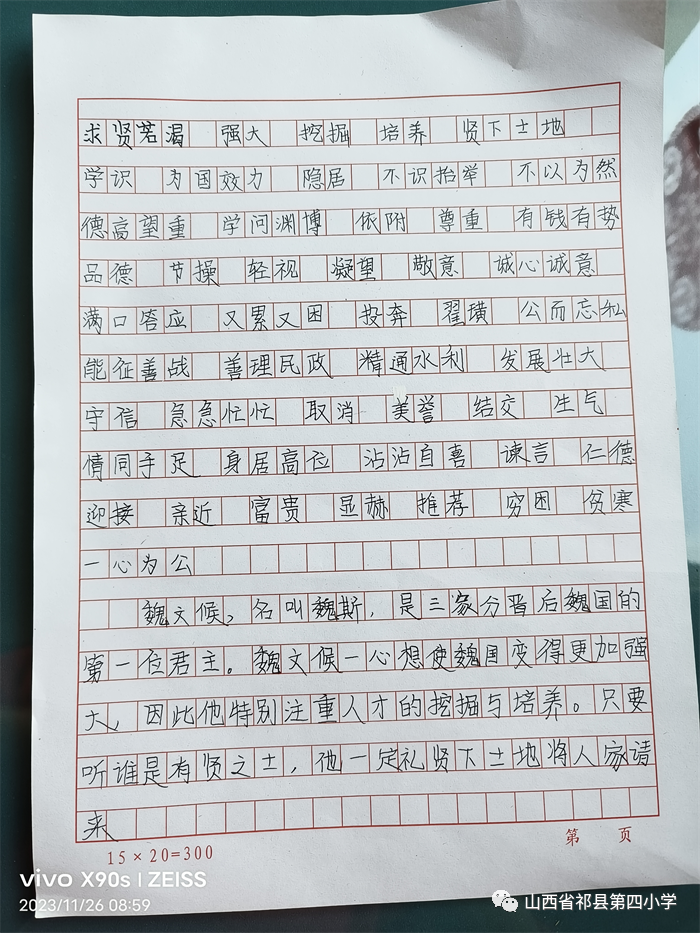 求贤若渴 强大 挖掘 培养 贤下士地
学识 为国效力 隐居 不识抬举 不以为然
德高望重 学问渊博 依附 尊重 有钱有势
品德 节操 轻视 凝望 敬意 诚心诚意
满口答应 又累又困 投奔 翟璜 公而忘私
能征善战 善理民政 精通水利 发展壮大
守信 急急忙忙 取消 美誉 结交 生气
情同手足 身居高位 沾沾自喜 谏言 仁德
迎接 亲近 富贵 显赫 推荐 穷困 贫寒
一心为公
魏文候，名叫魏斯，是三家分晋后魏国的
第一位君主。魏文候一心想使魏国变得更加强
大，因此他特别注重人才的挖掘与培养。只要
听谁是有贤之士，他一定礼贤下士地将人家请
来
15×20=300
第 页
vivo X90s | ZEISS
2023/11/26 08:59
山西省祁县第四小学